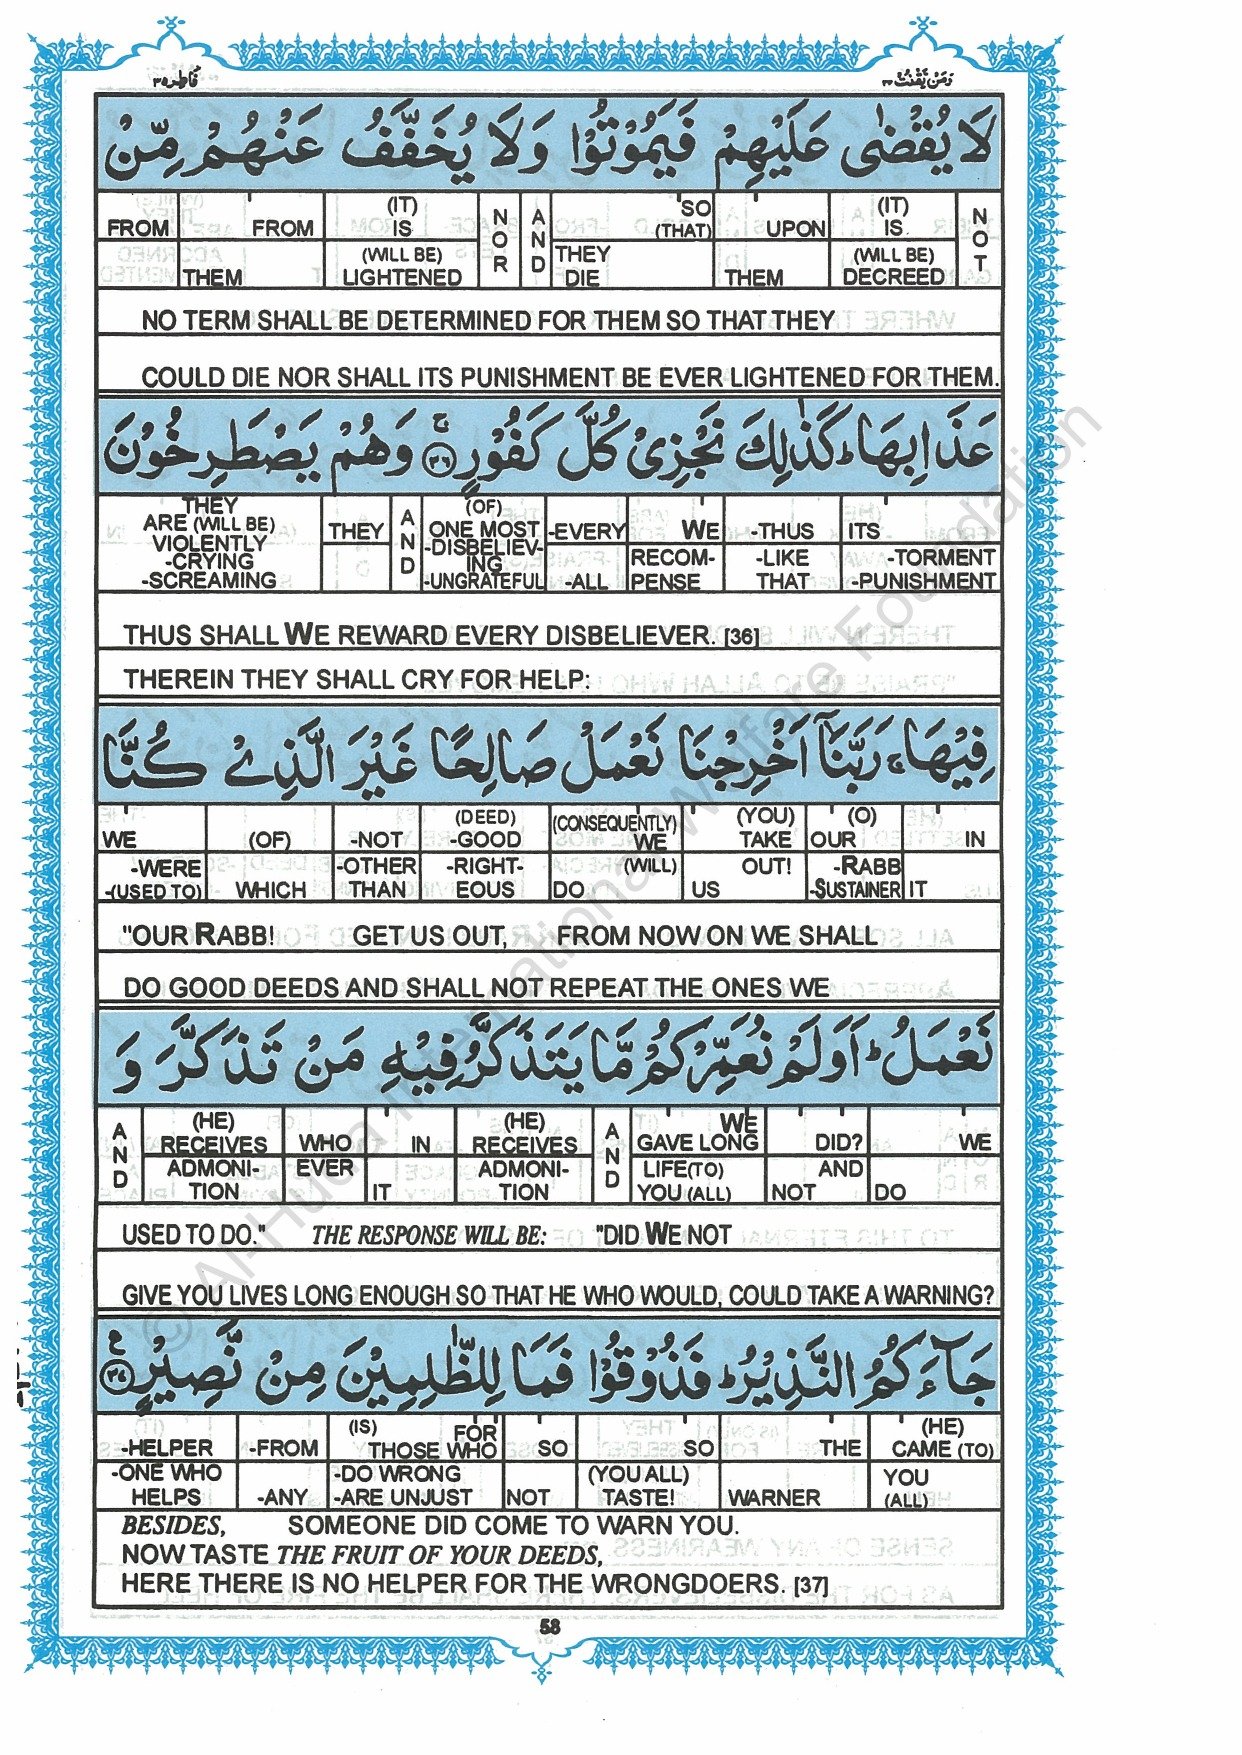 فاطر ۳۵
ومن یقنت ۲۲
لَا يُقْضٰى عَلَيْهِمْ فَيَمُوْتُوْا وَلَا يُخَفَّفُ عَنْهُمْ مِّنْ
FROM FROM (IT) IS NOR AND 'SO (THAT) UPON (IT) IS NOT
THEM (WILL BE) LIGHTENED THEY DIE THEM (WILL BE) DECREED
NO TERM SHALL BE DETERMINED FOR THEM SO THAT THEY
COULD DIE NOR SHALL ITS PUNISHMENT BE EVER LIGHTENED FOR THEM.
عَذَابِهَا ؕ كَذٰلِكَ نَجْزِىْ كُلَّ كَفُوْرٍ ۚ ﴿۳۶﴾ وَهُمْ يَصْطَرِخُوْنَ
THEY ARE (WILL BE) VIOLENTLY -CRYING -SCREAMING THEY AND (OF) ONE MOST -DISBELIEV-ING -UNGRATEFUL -EVERY -ALL WE RECOM-PENSE -THUS -LIKE THAT ITS -TORMENT -PUNISHMENT
THUS SHALL WE REWARD EVERY DISBELIEVER. [36]
THEREIN THEY SHALL CRY FOR HELP:
فِيْهَا ۚ رَبَّنَاۤ اَخْرِجْنَا نَعْمَلْ صَالِحًا غَيْرَ الَّذِىْ كُنَّا
WE (OF) -NOT (DEED) -GOOD (CONSEQUENTLY) WE (YOU) TAKE (O) OUR IN
-WERE -(USED TO) WHICH -OTHER THAN -RIGHT-EOUS (WILL) DO OUT! US -RABB -SUSTAINER IT
"OUR RABB! GET US OUT, FROM NOW ON WE SHALL
DO GOOD DEEDS AND SHALL NOT REPEAT THE ONES WE
نَعْمَلُ ؕ اَوَلَمْ نُعَمِّرْكُمْ مَّا يَتَذَكَّرُ فِيْهِ مَنْ تَذَكَّرَ وَ
AND (HE) RECEIVES WHO IN (HE) RECEIVES AND WE GAVE LONG DID? WE
ADMONI-TION EVER IT ADMONI-TION LIFE(TO) YOU (ALL) AND NOT DO
USED TO DO." THE RESPONSE WILL BE: "DID WE NOT
GIVE YOU LIVES LONG ENOUGH SO THAT HE WHO WOULD, COULD TAKE A WARNING?
جَآءَكُمُ النَّذِيْرُ ؕ فَذُوْقُوْا فَمَا لِلظّٰلِمِيْنَ مِنْ نَّصِيْرٍ ﴿۳۷﴾
-HELPER -FROM (IS) FOR THOSE WHO SO SO THE (HE) CAME (TO)
-ONE WHO HELPS -ANY -DO WRONG -ARE UNJUST NOT (YOU ALL) TASTE! WARNER YOU (ALL)
BESIDES, SOMEONE DID COME TO WARN YOU.
NOW TASTE THE FRUIT OF YOUR DEEDS,
HERE THERE IS NO HELPER FOR THE WRONGDOERS. [37]
58
© Al-Huda International Welfare Foundation